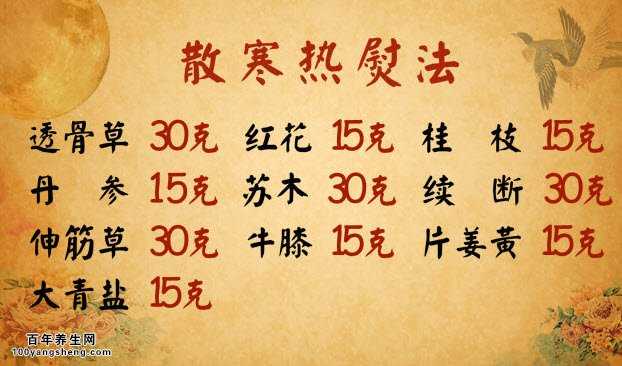 散寒热熨法
透骨草 30克 红花 15克 桂 枝 15克
丹 参 15克 苏木 30克 续 断 30克
伸筋草 30克 牛膝 15克 片姜黄 15克
大青盐 15克
百年养生网
100yangsheng.com